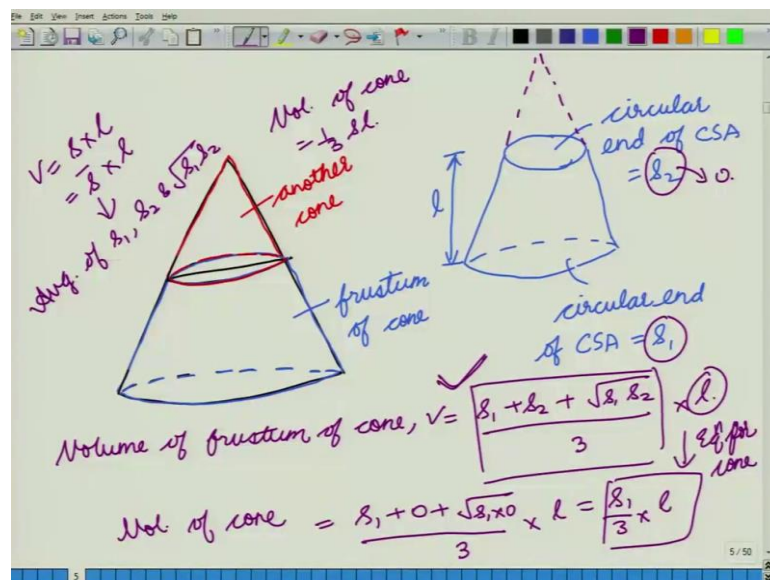 File Edit View Insert Actions Tools Help
B I
V = s × l
= s̄ × l
Avg. of s₁, s₂ & √s₁s₂
Vol. of cone
= 1/3 sl.
another
cone
frustum
of cone
circular
end of CSA
= s₂ → 0.
l
circular end
of CSA = s₁
Volume of frustum of cone, V = (s₁ + s₂ + √s₁ s₂)/3 × l.
Eqⁿ for
cone
Vol. of cone = (s₁ + 0 + √s₁×0)/3 × l = s₁/3 × l
5 / 50
5